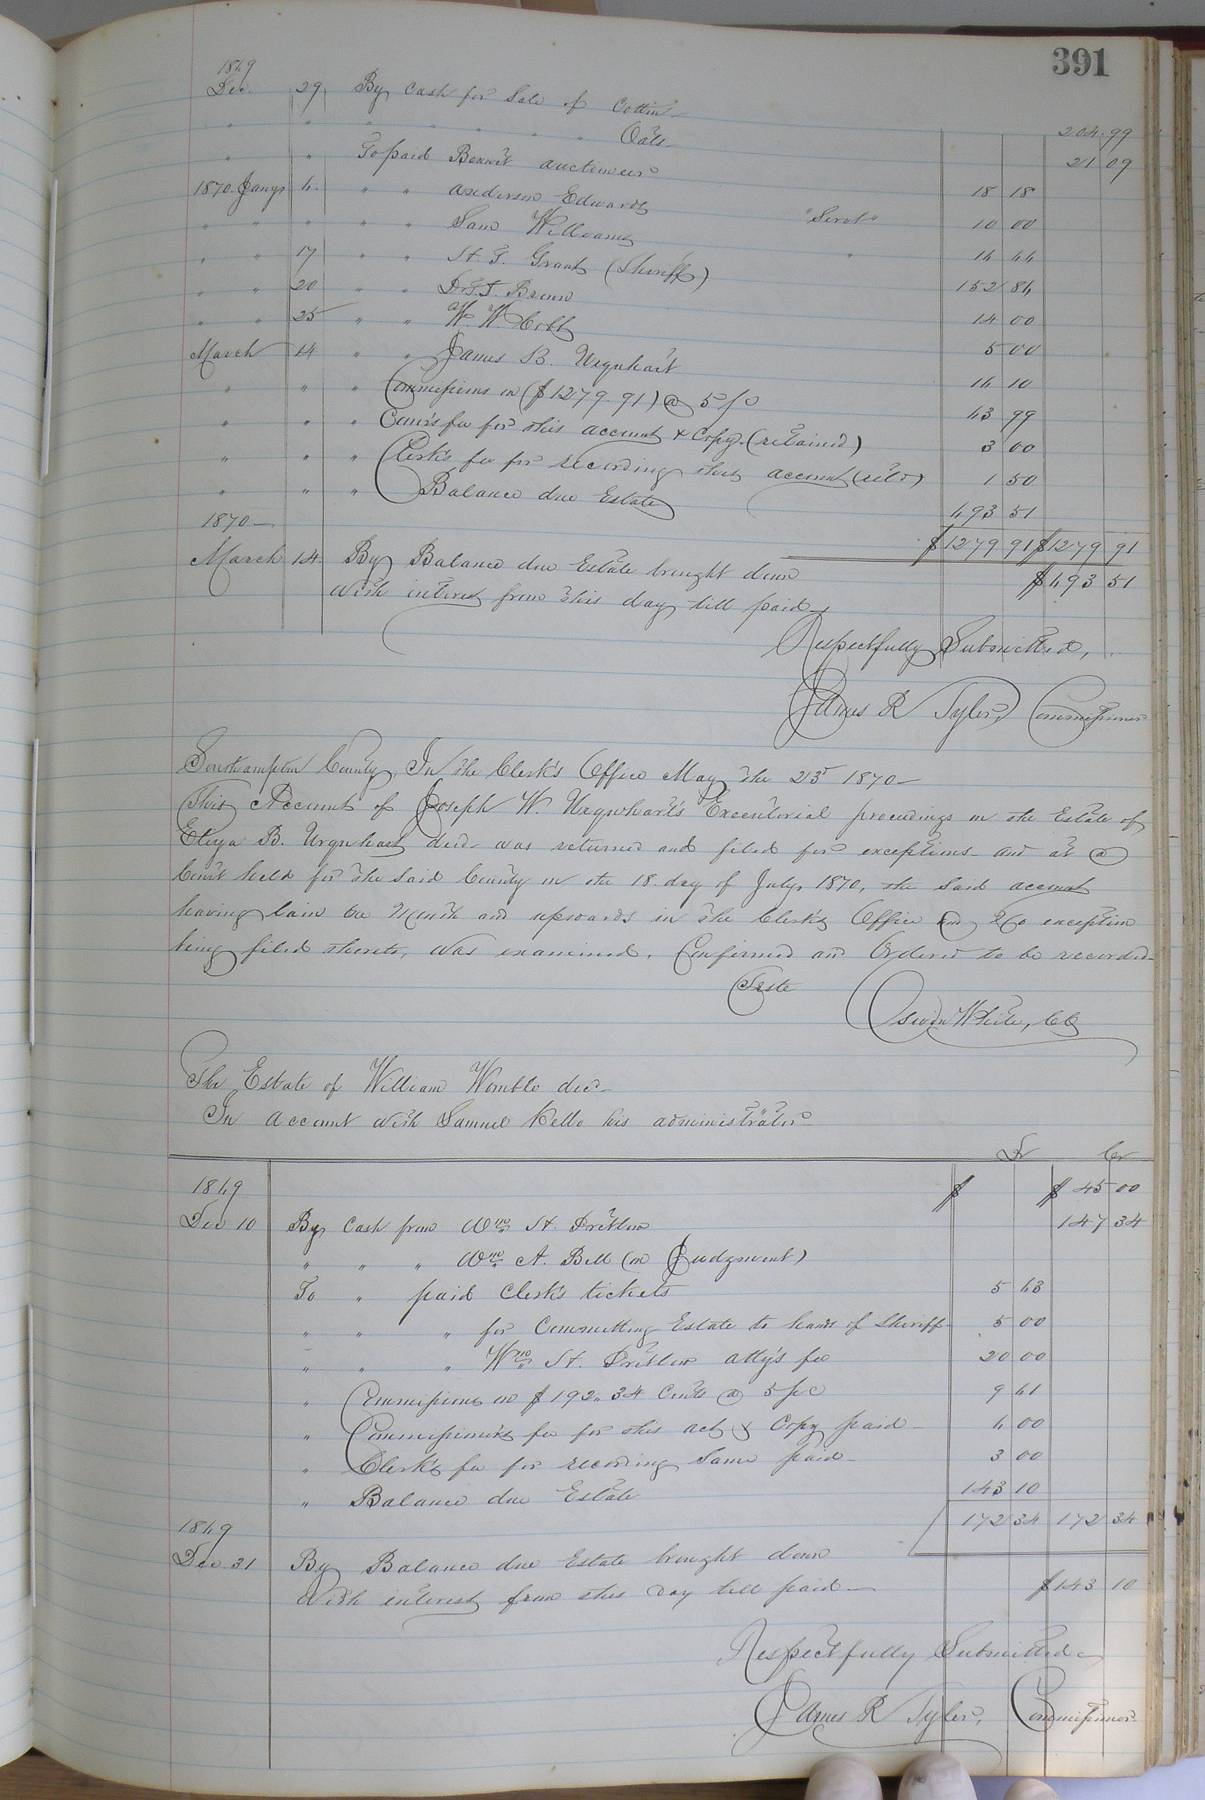 391
1869
Dec 29 By Cash for Sale of Cotton 204 99
" " " " " " " Oats 21 09
" " To paid Bennit auctioneer 18 18
1870 Jany 4 " " Anderson Edwards "Servt" 10 00
" " " " " Sam Williams " 14 44
" " 17 " " (Sheriff) 152 84
" " 20 " " Brown 14 00
" " 25 " " W. W. Cobb 5 00
March 14 " " James B. Urquhart 14 10
" " " Commissions on ($1279.91) @ 5 p/c 43 99
" " " Com's fee for this account & Copy (retained) 3 00
" " " Clerk's fee for recording this account (retd) 1 50
" " " Balance due Estate 493 51
1870 $1279 91 $1279 91
March 14 By Balance due Estate brought down $493 51
With interest from this day till paid
Respectfully Submitted,
James R Tyler, Commissioner
Southampton County, In the Clerk's Office May the 23d 1870
This Account of Joseph W. Urquhart's Executorial procedings on the Estate of
B. Urquhart decd was returned and filed for exceptions and at a
Court held for the said County on the 18 day of July 1870, the said account
having lain one Month and upwards in the Clerk's Office and No exception
being filed thereto, was examined, Confirmed and Ordered to be recorded
Teste
White, CC
The Estate of William Womble decd
In account with Samuel Kello his administrator
Dr Cr
1869 $ $ 45 00
Dec 10 By Cash from Wm H. Pretlow 147 34
" " " Wm A. Bell (on Judgment)
To " paid Clerk's tickets 5 63
" " " for Committing Estate to hands of Sheriff 5 00
" " " Wm H. Pretlow atty's fee 20 00
" Commissions on $192.34 Cents @ 5 p/c 9 61
" Commissioner's fee for this act & Copy paid 6 00
" Clerk's fee for recording Same paid 3 00
" Balance due Estate 143 10
1869 172 34 172 34
Dec 31 By Balance due Estate brought down
With interest from this day till paid $143 10
Respectfully Submitted
James R Tyler, Commissioner